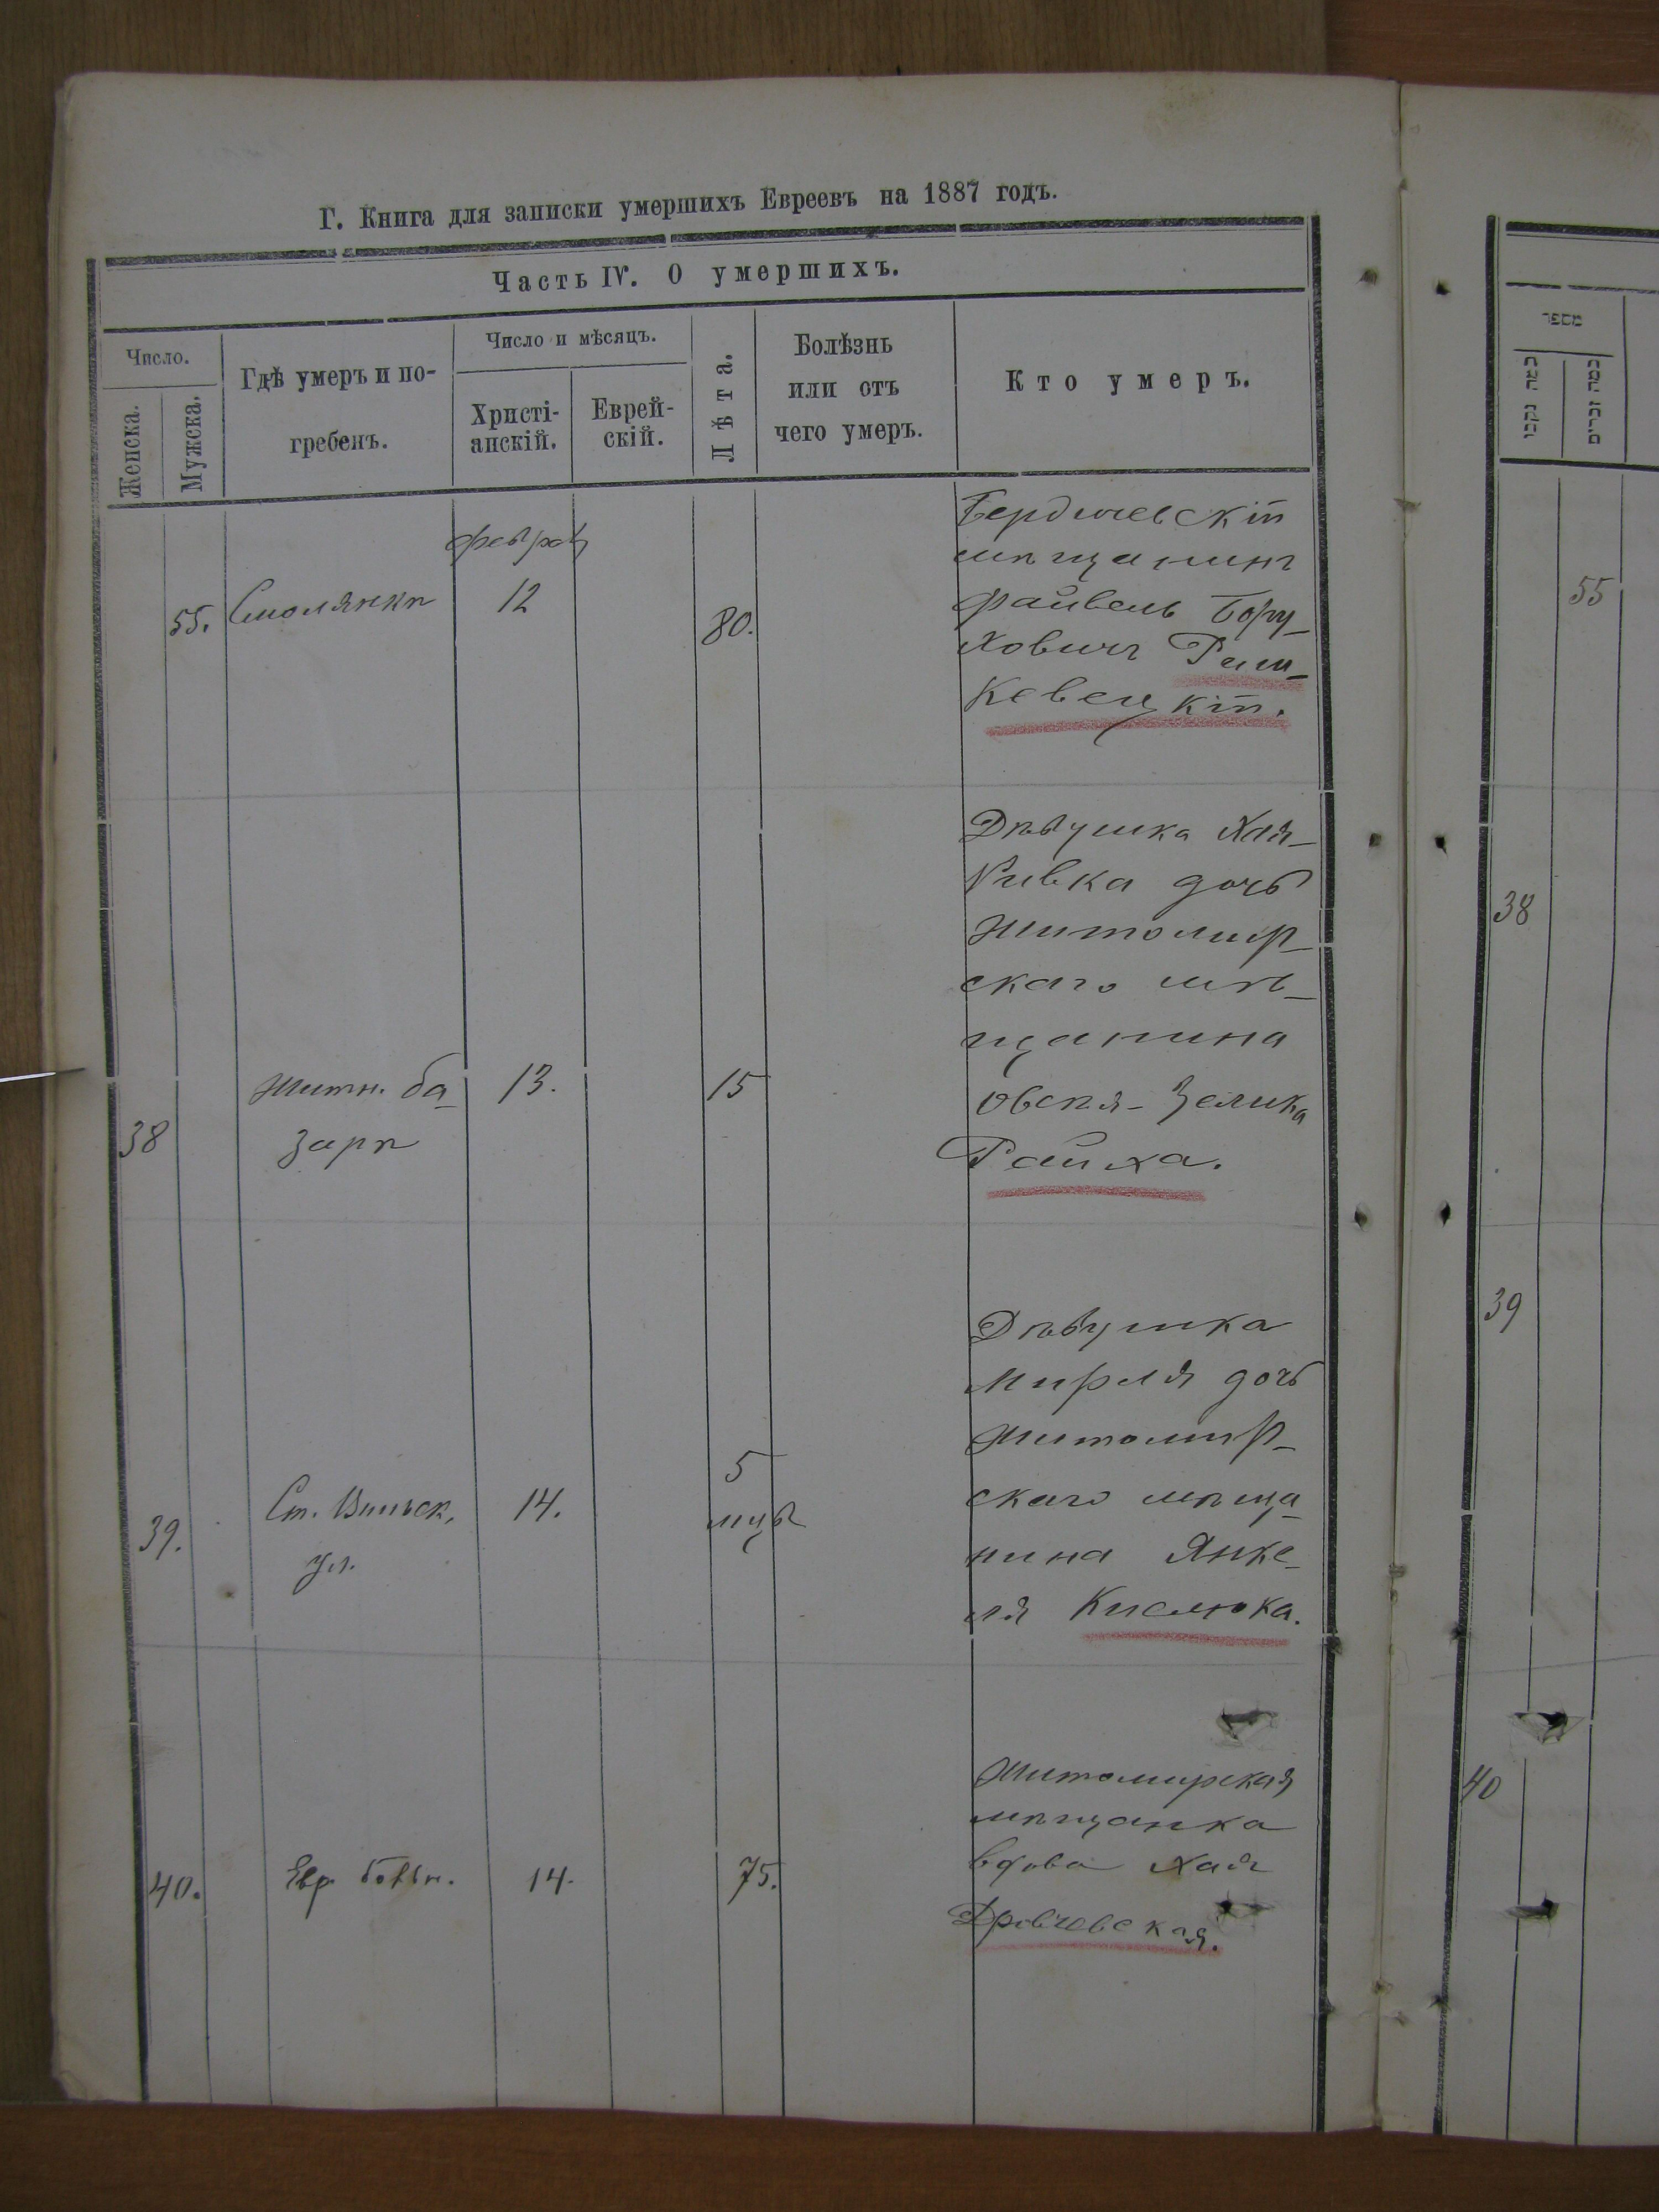 Г. Книга для записки умершихъ Евреевъ на 1887 годъ.
Часть IV. О умершихъ.
Число.
Женска.
Мужска.
Гдѣ умеръ и по-
гребенъ.
Число и мѣсяцъ.
Христі-
анскій.
Еврей-
скій.
Лѣта.
Болѣзнь
или отъ
чего умеръ.
Кто умеръ.
מספר
כמה נקבו
כמה זכרים
55. Смолянкѣ
12
80.
Бердичевскій
мѣщанинъ
Файвель Бору-
ховичъ Раш-
кевецкій.
55
38
Житн. ба-
зарѣ
13.
15
Дѣвушка Хая-
Ривка дочь
Житомир-
скаго мѣ-
щанина
Овсея-Зелика
Райха.
38
39.
Ст. Вильск.
ул.
14.
5
мцѣ
Дѣвушка
Мирля дочь
Житомир-
скаго мѣща-
нина Янке-
ля Кислюка.
39
40.
Евр. больн.
14.
75.
Житомирская
мѣщанка
вдова Хая
40